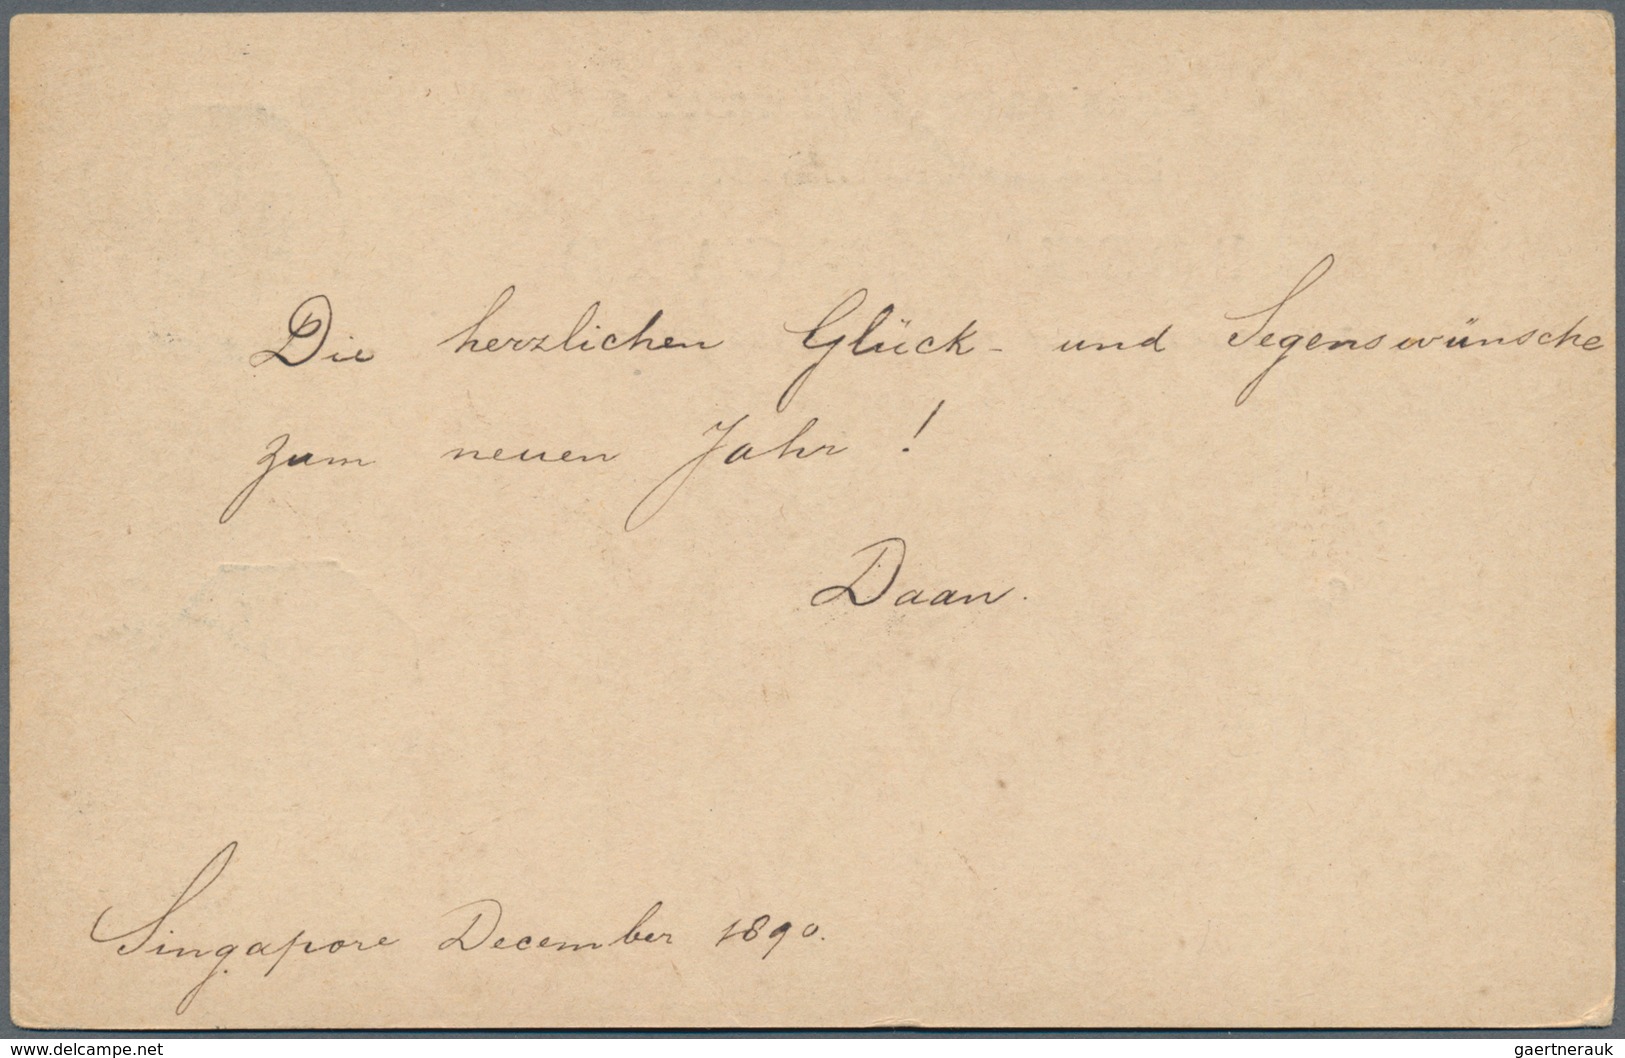 Die herzlichen Glück- und Segenswünsche
zum neuen Jahr!
Daan.
Singapore December 1890.
www.delcampe.net
gaertnerauk